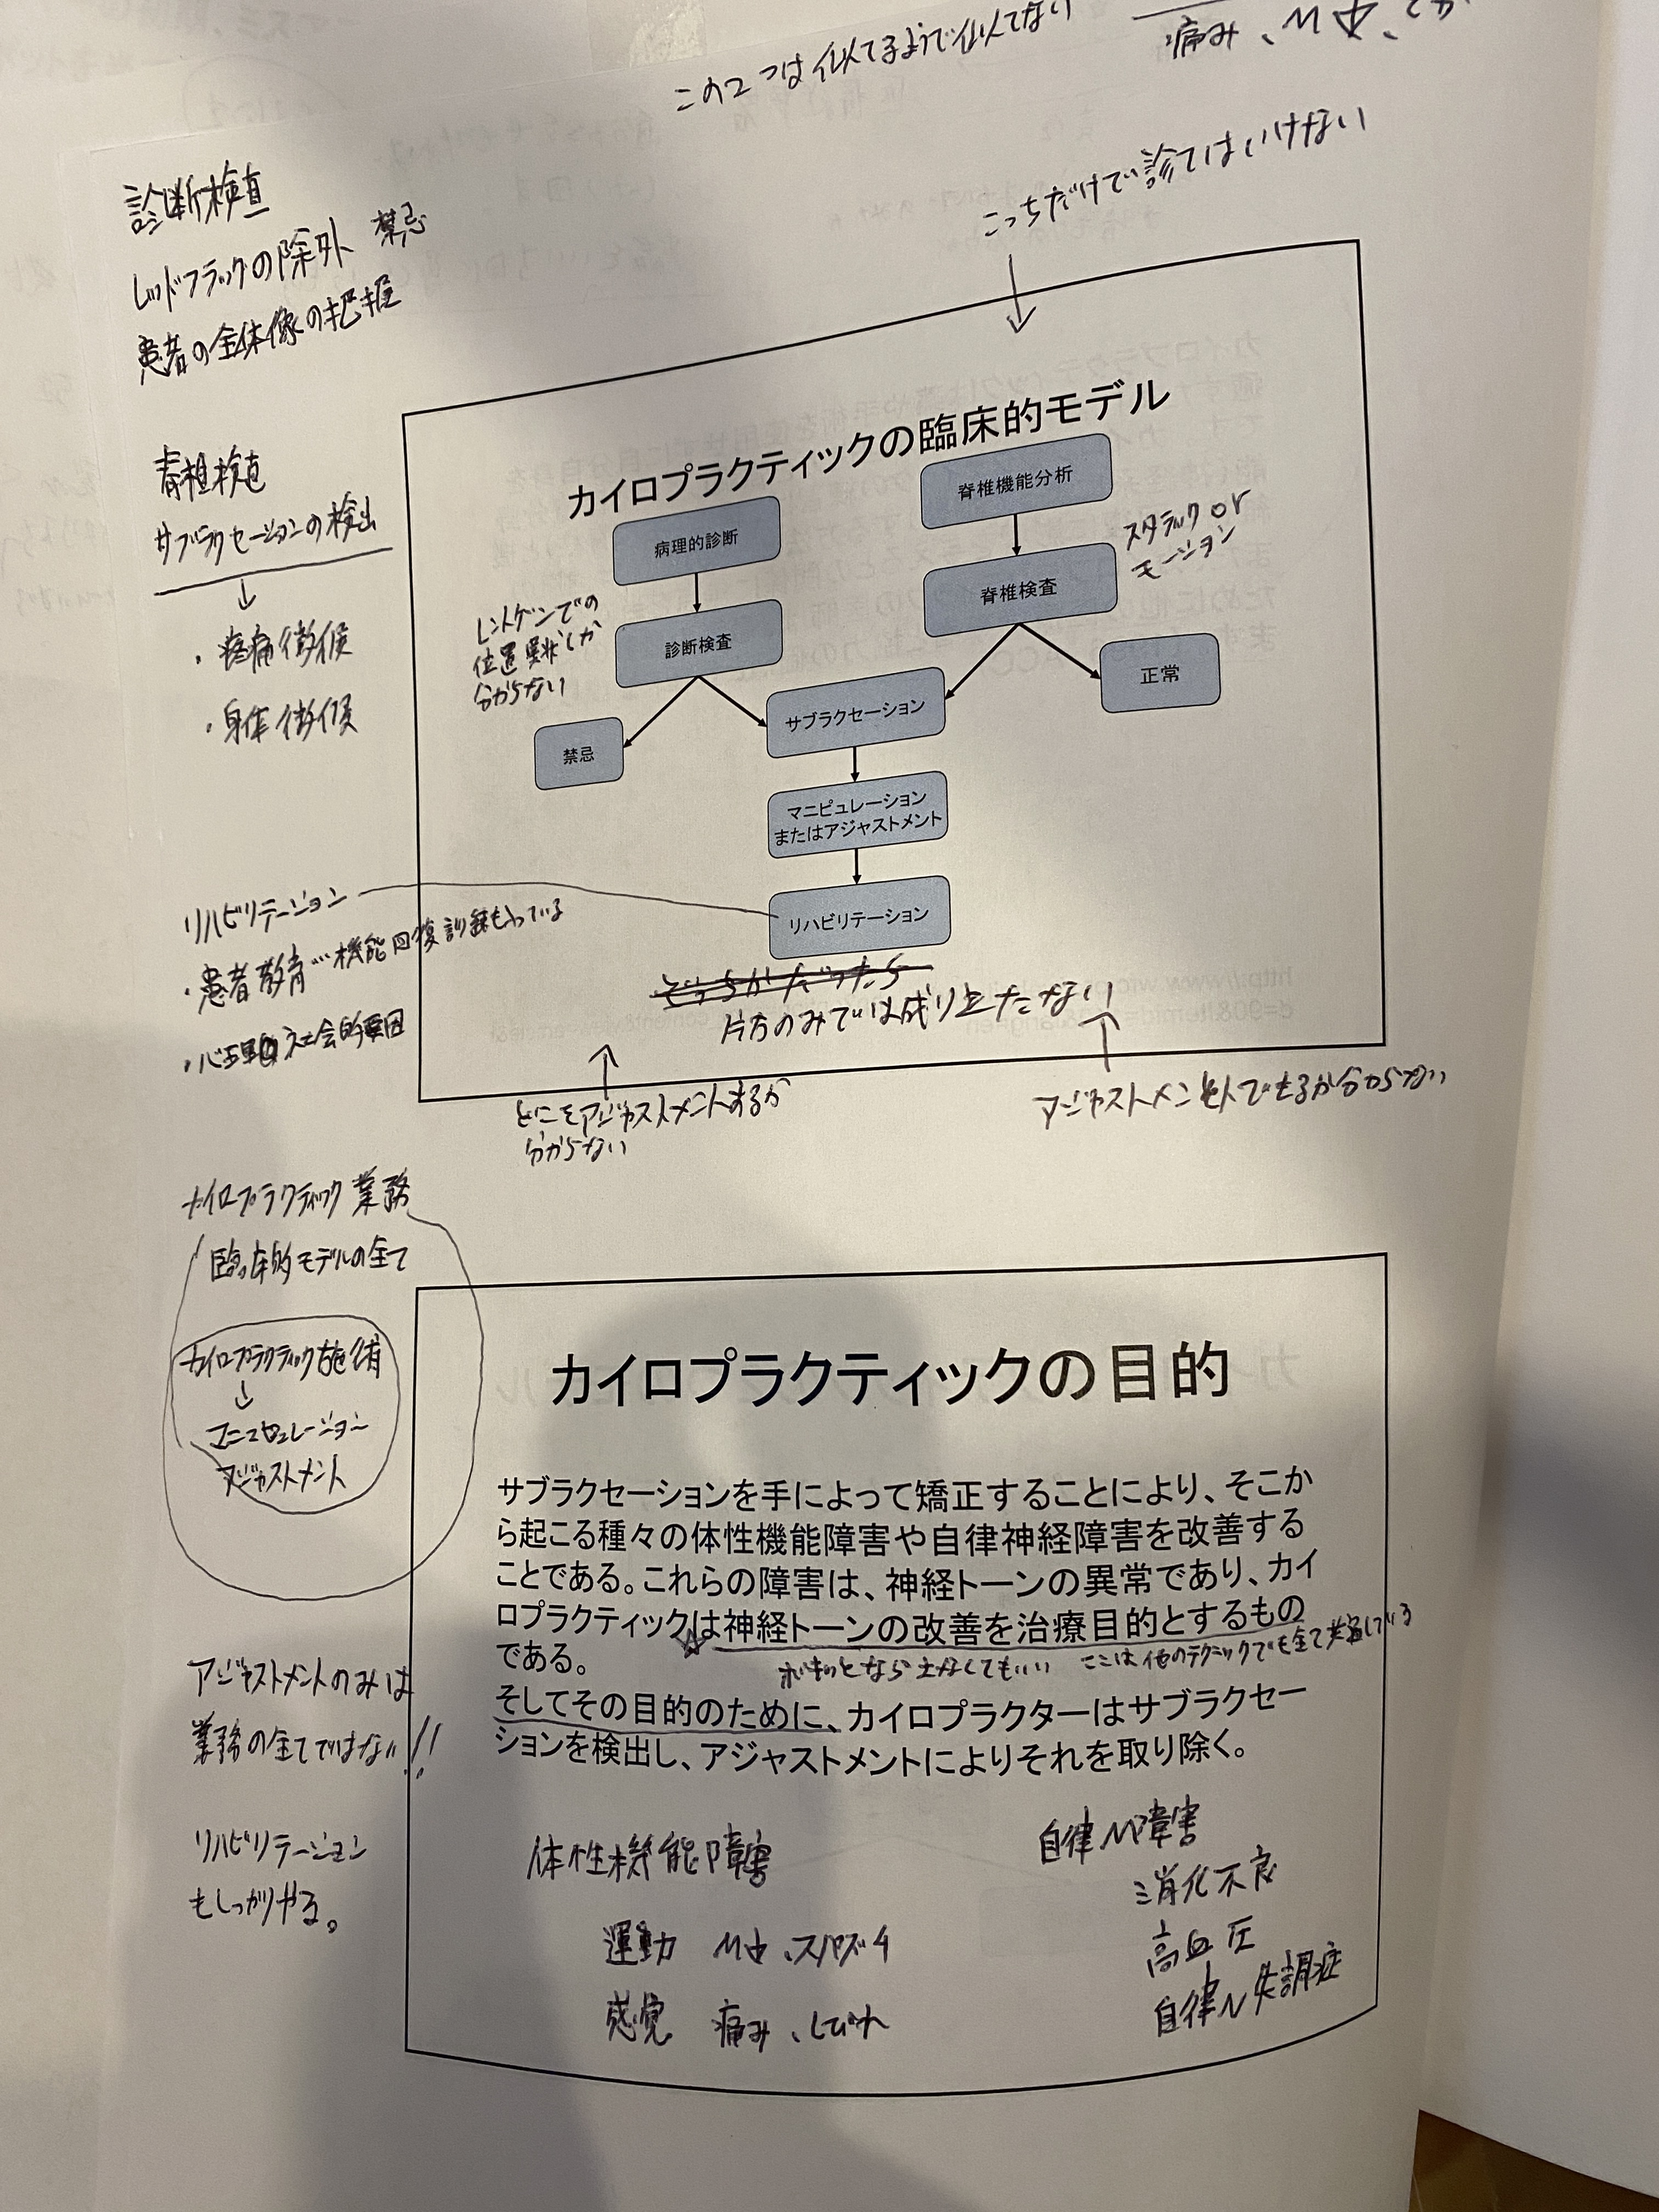 この2つは似てるようで似てない
痛み、
こっちだけで診てはいけない
診断検査
レッドフラックの除外 禁忌
患者の全体像の把握
脊椎検査
サブラクセーションの検出
↓
・疼痛徴候
・身体徴候
カイロプラクティックの臨床的モデル
病理的診断
脊椎機能分析
診断検査
脊椎検査
スタティック or
モーション
レントゲンでの
位置異常しか
分からない
禁忌
サブラクセーション
正常
マニピュレーション
またはアジャストメント
リハビリテーション
リハビリテーション
・患者教育…機能回復訓練も入っている
・心理的社会的要因
片方のみでは成り立たない
どこをアジャストメントするか
分からない
アジャストメントできるか分からない
カイロプラクティック業務
臨床的モデルの全て
カイロプラクティック施術
↓
マニピュレーション
アジャストメント
カイロプラクティックの目的
サブラクセーションを手によって矯正することにより、そこか
ら起こる種々の体性機能障害や自律神経障害を改善する
ことである。これらの障害は、神経トーンの異常であり、カイ
ロプラクティックは神経トーンの改善を治療目的とするもの
である。
ここは他のテクニックでも全て共通している
そしてその目的のために、カイロプラクターはサブラクセー
ションを検出し、アジャストメントによりそれを取り除く。
アジャストメントのみは
業務の全てではない!!
リハビリテーション
もしっかりやる。
体性機能障害
運動 スパズム
感覚 痛み、しびれ
自律N障害
消化不良
高血圧
自律N失調症